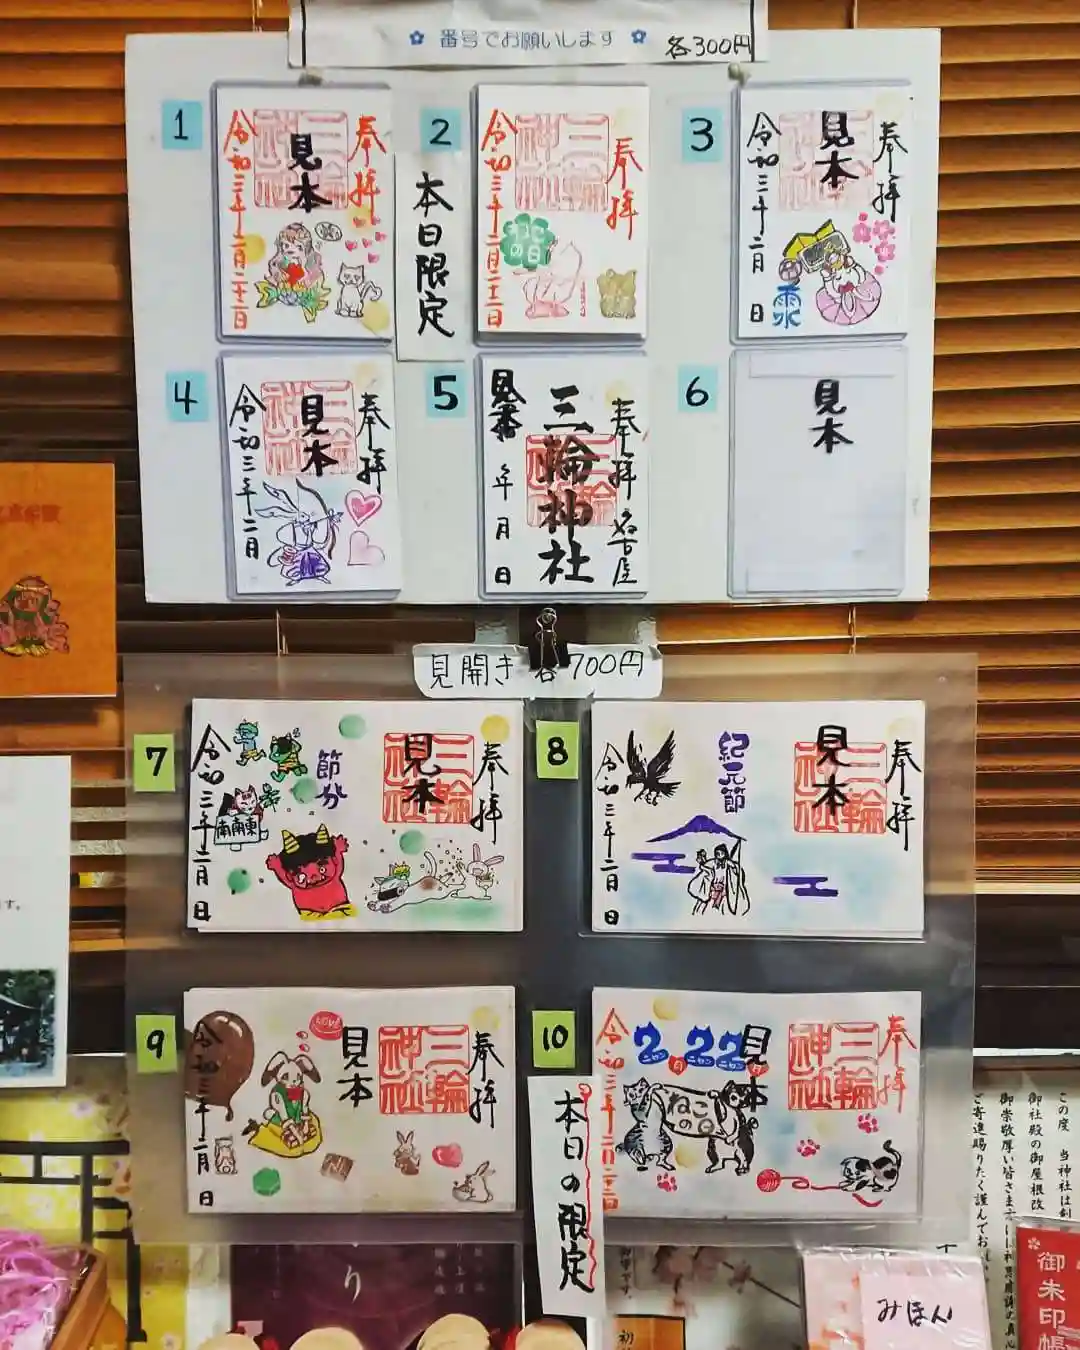 番号でお願いします
各300円
1
奉拝
三輪神社
見本
令和三年二月二十二日
2
奉拝
三輪神社
令和三年二月二十二日
本日限定
3
奉拝
三輪神社
見本
雨水
令和三年二月 日
4
奉拝
三輪神社
見本
令和三年二月
5
奉拝
名古屋
三輪神社
年月日
6
見本
見開き各700円
7
奉拝
三輪神社
見本
節分
南南東
令和三年二月 日
8
奉拝
三輪神社
見本
紀元節
令和三年二月 日
9
奉拝
三輪神社
見本
令和三年二月 日
10
奉拝
三輪神社
見本
2月22
ニャン
ニャンニャン
ねこの日
令和三年二月二十二日
本日の限定
この度 当神社は
御社殿の御屋根改
御崇敬厚い皆さま
ご寄進賜りたく謹んでお
みほん
御朱印帳
す。
り